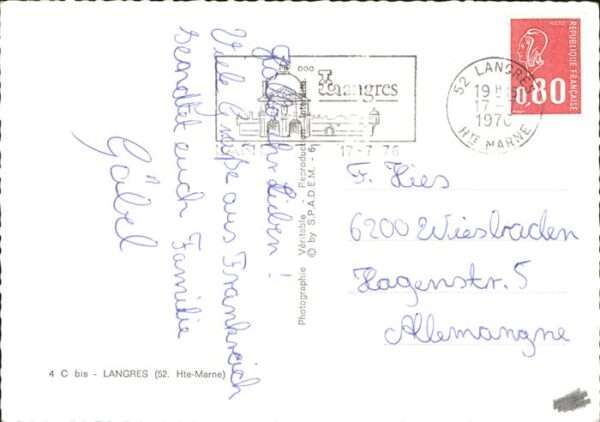 Hallo ihr Lieben!
Viele Grüße aus Frankreich
sendet euch Familie
Göbel
F. Hies
6200 Wiesbaden
Hagenstr. 5
Allemangne
RÉPUBLIQUE FRANÇAISE
0,80
52 LANGRES
19 H
17 -
1976
HTE MARNE
Langres
17-7 76
Photographie Véritable - Reproduction Interdite
© by S.P.A.D.E.M. - 6
4 C bis - LANGRES (52. Hte-Marne)